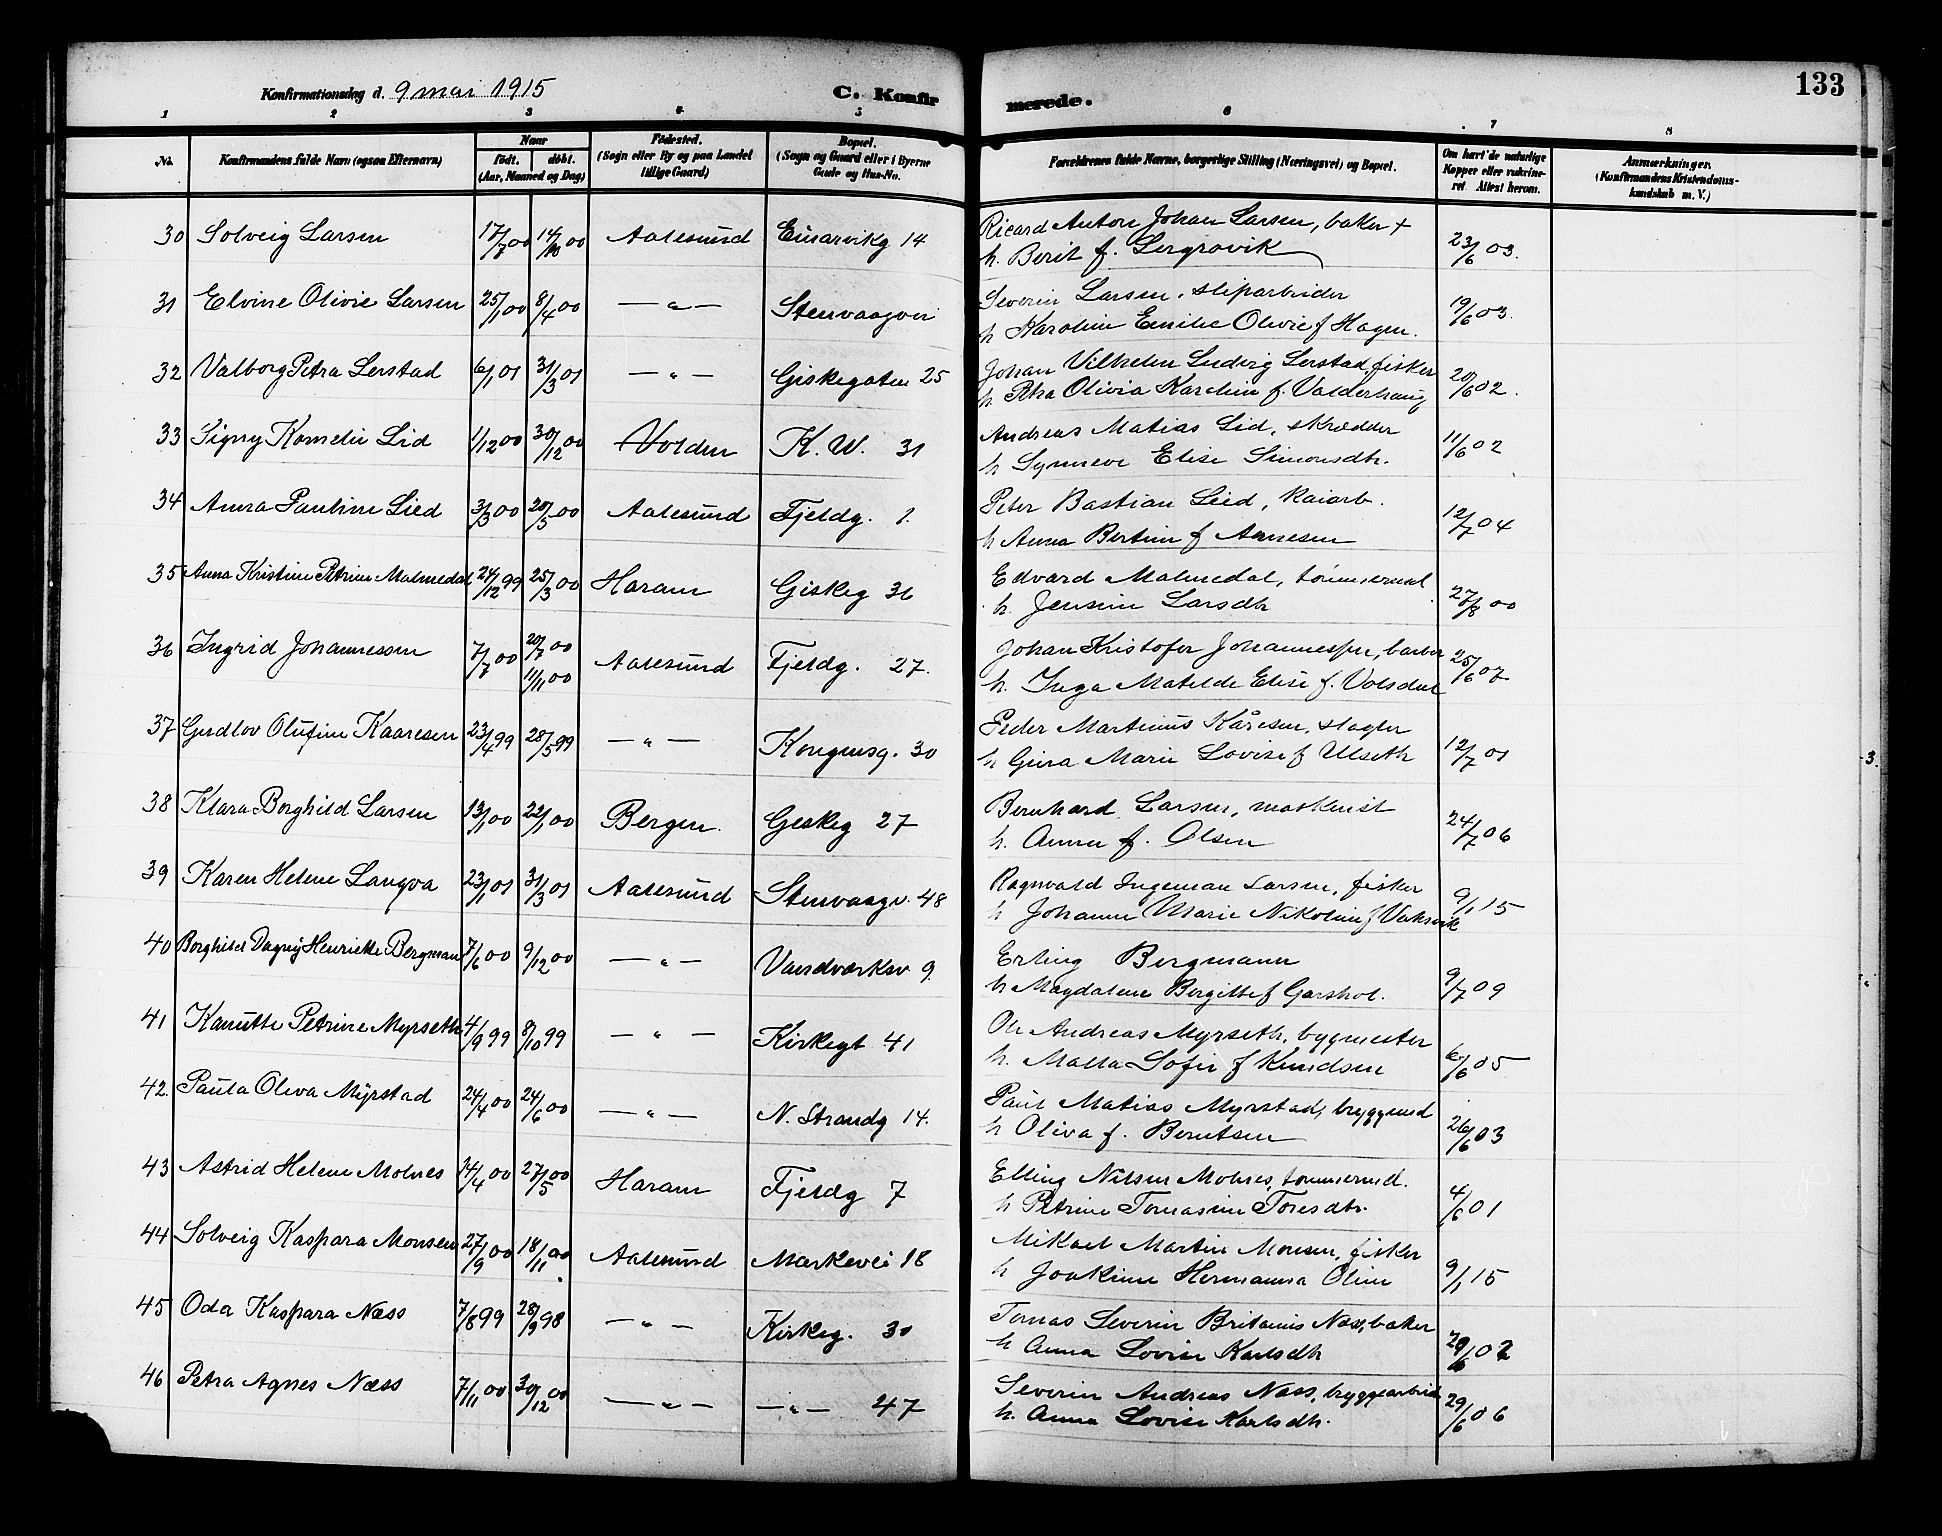 133
Konfirmationsdag d. 9 mai 1915 C. Konfirmerede.
1 2 3 4 5 6 7 8
No. Konfirmandens fulde Navn (ogsaa Efternavn) Naar født. døbt. (Aar, Maaned og Dag) Fødested. (Sogn eller By og paa Landet tillige Gaard) Bopæl. (Sogn og Gaard eller i Byerne Gade og Hus-No. Forældrenes fulde Navne, borgerlige Stilling (Næringsvei) og Bopæl. Om havt de naturlige Kopper eller vakcineret. Attest herom. Anmærkninger. (Konfirmandens Kristendomskundskab m. V.)
30 Solveig Larsen 17/7 00 14/10 00 Aalesund Einarvikg 14 Ricard Anton Johan Larsen, baker + 23/6 03.
h. Berit f. Lergrovik
31 Elvine Olivie Larsen 25/1 00 8/4 00 — " — Stenvaagvei Severin Larsen, sliparbeider 19/6 03.
h Karoline Emilie Olivie f Hagen.
32 Valborg Petra Lerstad 6/1 01 31/3 01 — " — Giskegaten 25 Johan Vilhelm Ludvig Lerstad, fisker 20/6 02.
h Petra Olivia Karoline f. Valderhaug
33 Signy Kornelie Lid 1/12 00 30/12 00 Volden K. W. 31 Andreas Matias Lid, skrædder 11/6 02
h Synneve Elise Simonsdtr.
34 Anna Pauline Lied 3/3 00 20/5 00 Aalesund Fjeldg. 1. Peter Bastian Lied, kaiarb. 12/7 04
h Anna Bertine f Arnesen
35 Anna Kristine Petrine Malmedal 24/12 99 25/3 00 Haram Giskeg 36 Edvard Malmedal, tømmermd. 27/8 00
h. Jensine Larsdtr
36 Ingrid Johannessen 7/7 00 20/7 00 11/11 00 Aalesund Fjeldg. 27. Johan Kristofer Johannessen, barber 25/6 07
h. Inga Matilde Elise f. Volsdal
37 Gudlov Olufine Kaaresen 23/4 99 28/5 99 — " — Kongensg. 30 Peder Martinus Kåresen, slagter 12/7 01
h Gina Marie Lovise f Ulseth
38 Klara Borghild Larsen 13/1 00 22/1 00 Bergen. Giskeg 27 Bernhard Larsen, maskinist 24/7 06
h. Anna f. Olsen
39 Karen Helene Langva 23/1 01 31/3 01 Aalesund Stenvaagv. 48 Ragnvald Ingeman Larsen, fisker 9/1 15
h Johanne Marie Nikoline f Vaksvik
40 Borghild Dagny Henriette Bergmann 7/6 00 9/12 00 — " — Vandværksv 9. Erling Bergmann 9/7 09
h Magdalene Bergitte f Garshol.
41 Kanutte Petrine Myrseth 4/9 99 8/10 99 — " — Kirkegt 41 Ole Andreas Myrseth, bygmester 6/6 05
h. Malla Sofie f Knudsen
42. Paula Oliva Myrstad 24/4 00 24/6 00 — " — N. Strandg 14. Paul Matias Myrstad, bryggemd 26/6 03
h Oliva f. Berntsen
43 Astrid Helene Molnes 14/4 00 27/5 00 Haram Fjeldg 7 Elling Nilsen Molnes, tømmermd. 4/6 01
h Petrine Tomasine Toresdtr.
44 Solveig Kaspara Monsen 27/9 00 18/11 00 Aalesund Markevei 18 Mikael Martin Monsen, fisker 9/1 15
h Joakime Hermanna Oline
45 Oda Kaspara Næss 7/8 99 28/9 98 — " — Kirkeg. 30 Tomas Severin Britanus Næs, baker 29/6 02
h Anna Lovise Karlsdtr
46 Petra Agnes Næss 7/11 00 30/12 00 — " — — " — 47 Severin Andreas Næss, bryggearbeid 29/6 06
h. Anna Lovise Karlsdtr.